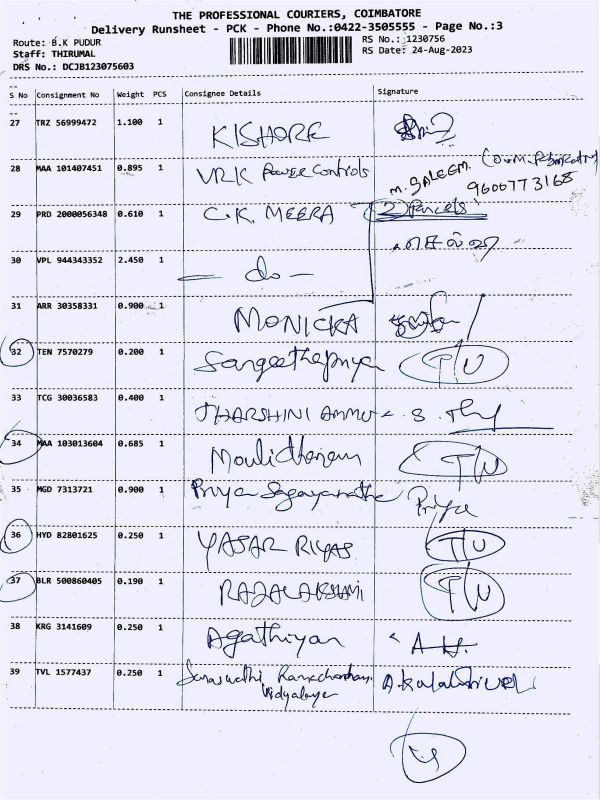 THE PROFESSIONAL COURIERS, COIMBATORE
Delivery Runsheet - PCK - Phone No.:0422-3505555 - Page No.:3
Route: B.K PUDUR
RS No.: 1230756
Staff: THIRUMAL
RS Date: 24-Aug-2023
DRS No.: DCJB123075603
S No Consignment No Weight PCS Consignee Details Signature
27 TRZ 56999472 1.100 1 KISHORE
28 MAA 101407451 0.895 1 VRK Power Controls M. SALEEM.
9600773168
29 PRD 2000056348 0.610 1 C.K. MEERA (2) Parcels
30 VPL 944343352 2.450 1 - do -
31 ARR 30358331 0.900 1 MONICKA
32 TEN 7570279 0.200 1 Sangeethapriya T/U
33 TCG 30036583 0.400 1 THARSHINI AMMU S.
34 MAA 103013604 0.685 1 Moulidharan T/U
35 MGD 7313721 0.900 1 Priya Priya
36 HYD 82801625 0.250 1 YASAR RIYAS T/U
37 BLR 500860405 0.190 1 RAJALAKSHMI T/U
38 KRG 3141609 0.250 1 Agathiyan
39 TVL 1577437 0.250 1 Saraswathi Ramachandran
Vidyalaya